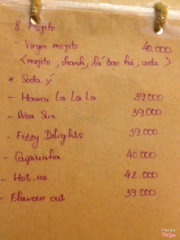 8. Mojito
- Virgin mojito 40.000
( mojito, chanh, lá bạc hà, soda )
* Soda ý
- Hawai La La La 39.000
- Nea Sun 39.000
- Fizzy Delights 39.000
- Caparinha 40.000
- Hot.na 42.000
- Flavour out 39.000